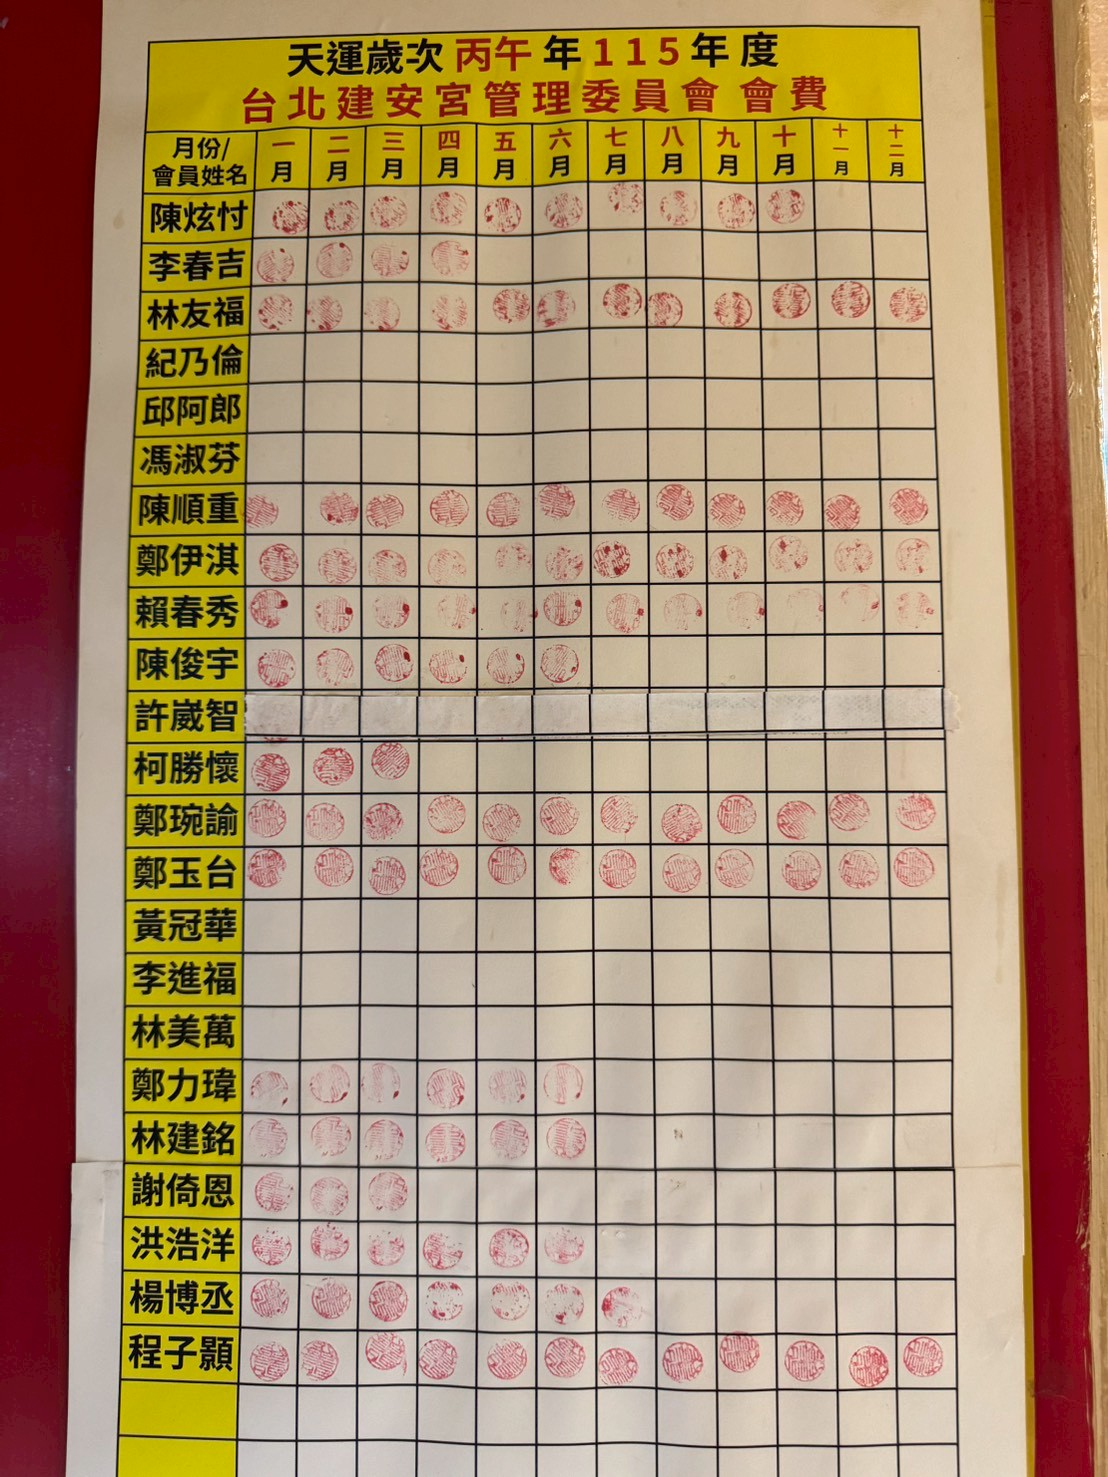 天運歲次丙午年115年度
台北建安宮管理委員會 會費
月份/會員姓名 一月 二月 三月 四月 五月 六月 七月 八月 九月 十月 十一月 十二月
陳炫忖
李春吉
林友福
紀乃倫
邱阿郎
馮淑芬
陳順重
鄭伊淇
賴春秀
陳俊宇
許崴智
柯勝懷
鄭琬諭
鄭玉台
黃冠華
李進福
林美萬
鄭力瑋
林建銘
謝倚恩
洪浩洋
楊博丞
程子顥